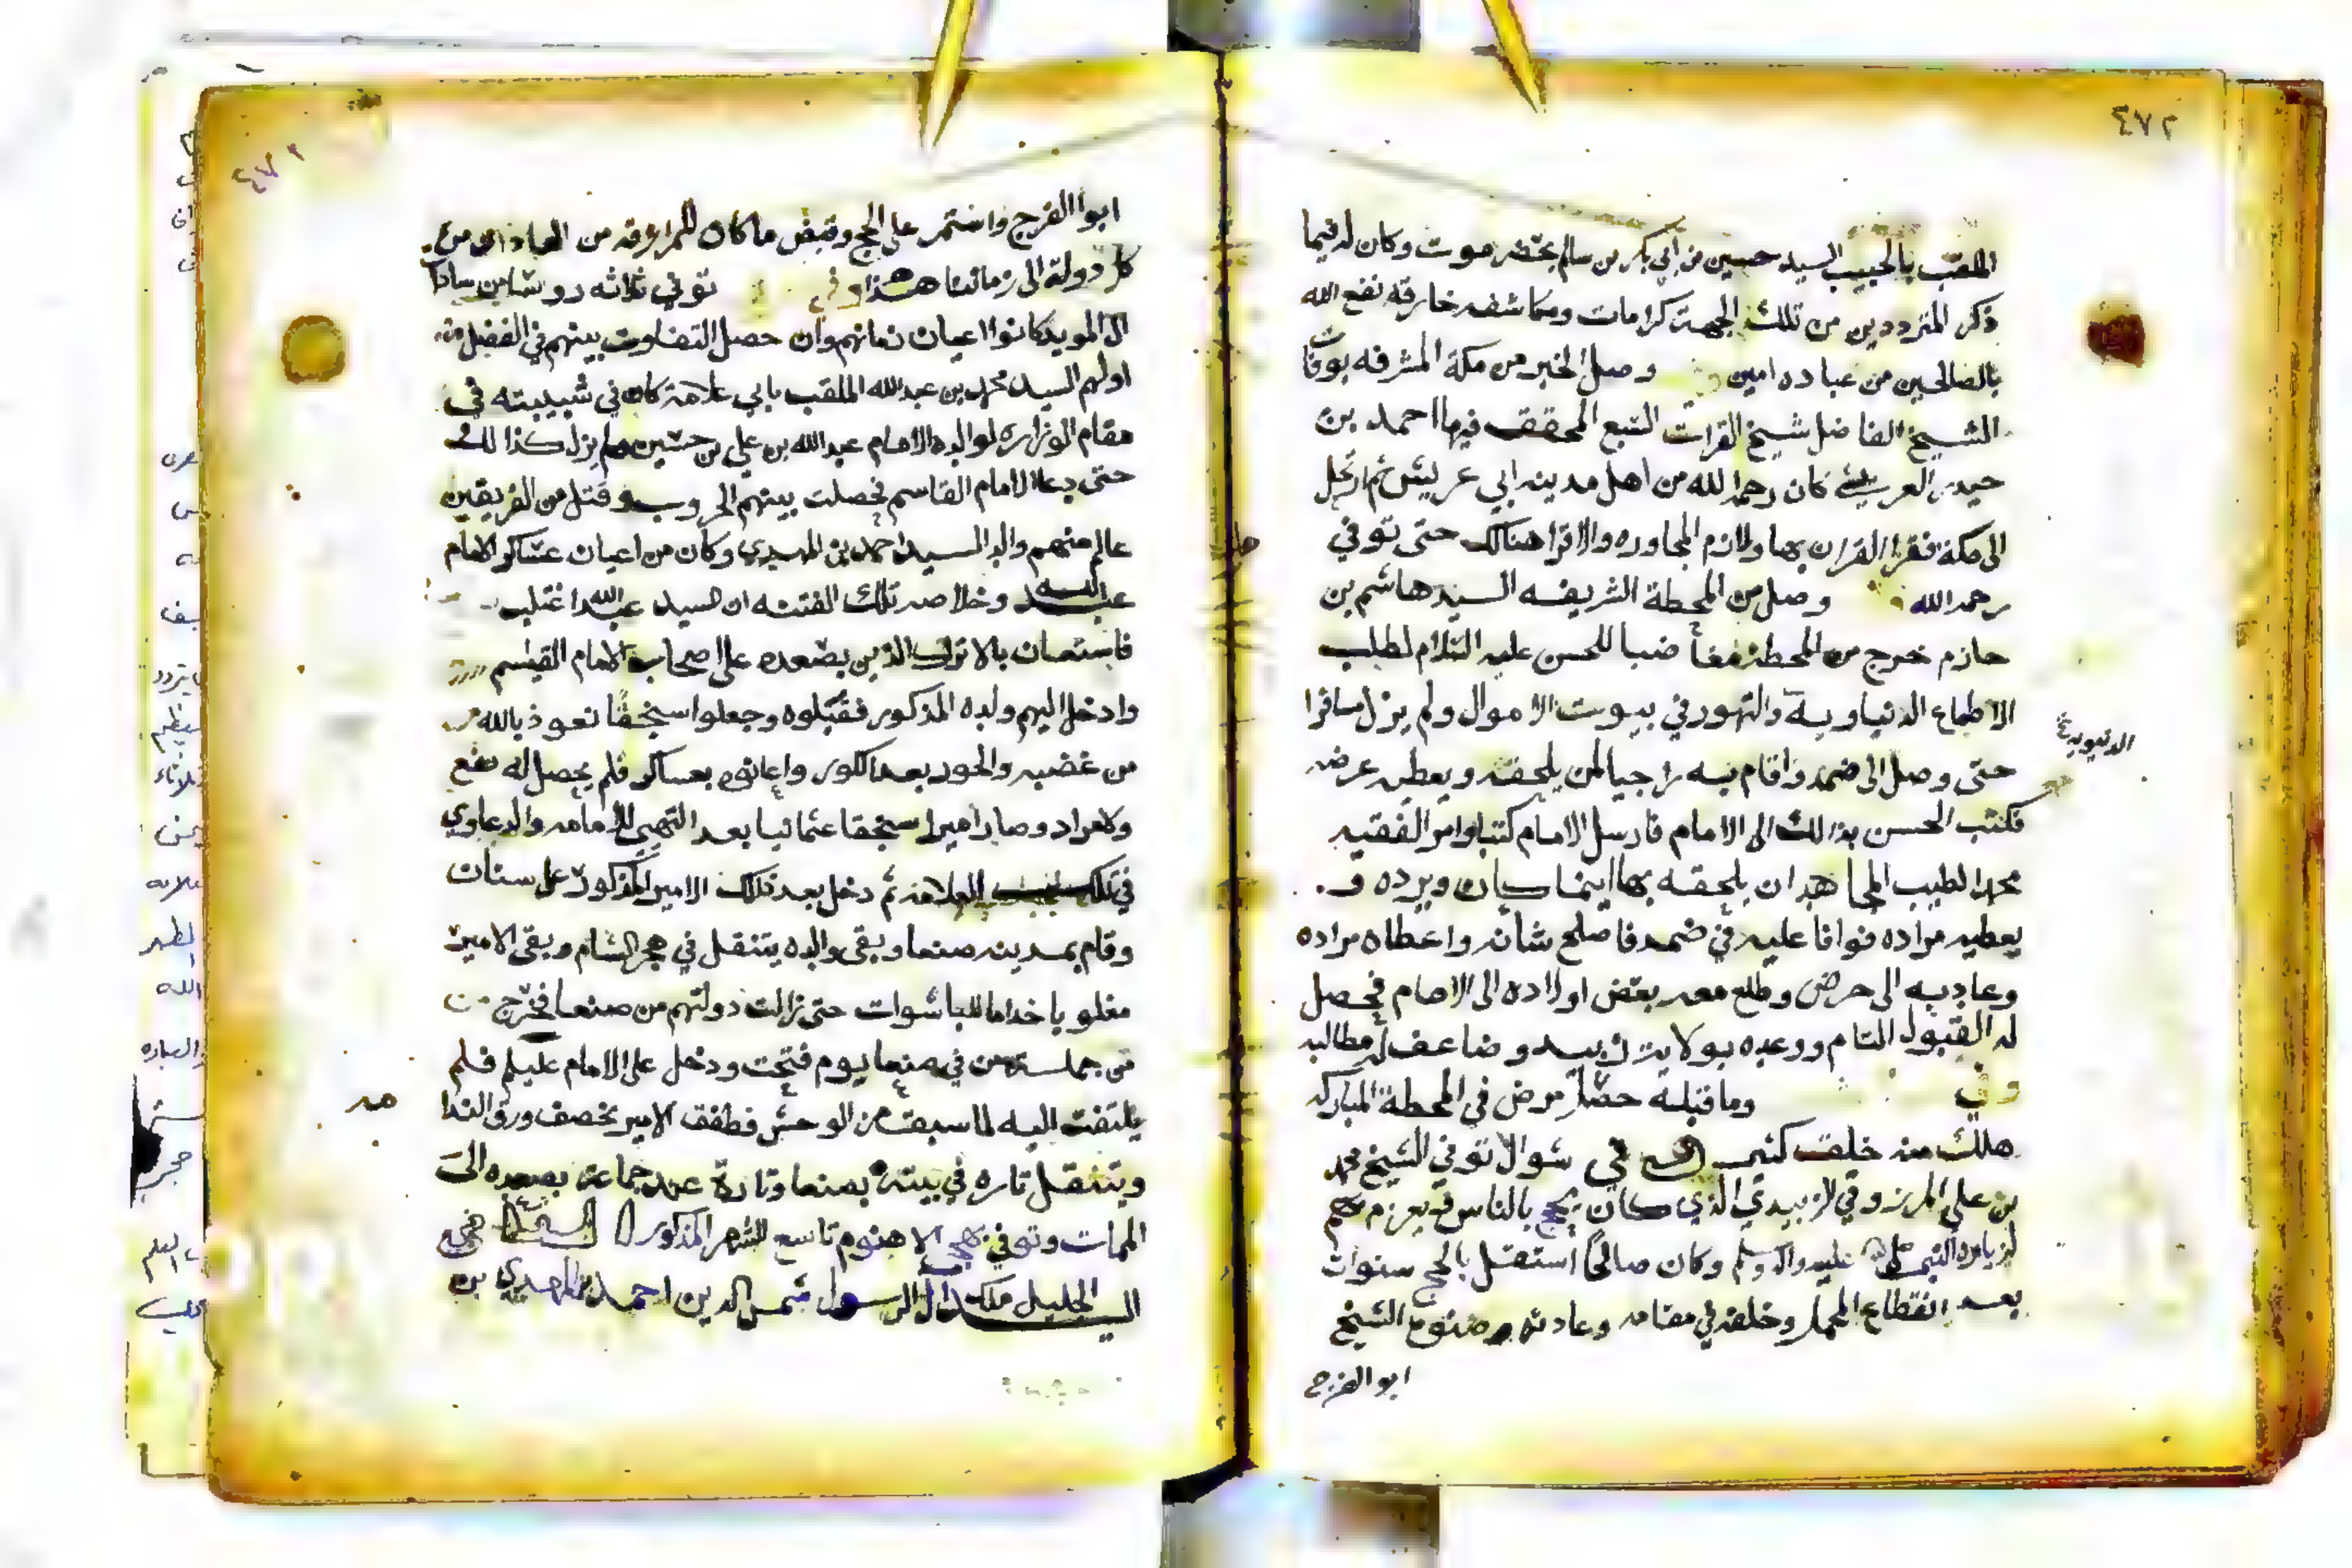 ٤٧٢
الملقب بالحبيب السيد حسين بن ابي بكر بن سالم بحضرموت وكان له فيما
ذكر المترددين من تلك الجهة كرامات ومكاشفه خارقه نفع الله
بالصالحين من عباده امين وصل الخبر من مكة المشرفه بوفات
الشيخ الفاضل شيخ القرات السبع المحقق فيها احمد بن
حيدر العريشي كان رحمه الله من اهل مدينه ابي عريش ثم ارتحل
الى مكة فقرا القران بها ولازم المجاوره والاقرا هنالك حتى توفي
رحمه الله وصل من المحطة الشريفه السيد هاشم بن
حازم خرج من المحطة مغاضبا للحسن عليه السلام لطلب
الاطماع الدنياوية والتهور في بيوت الاموال ولم يزل مسافرا
الدنيويه
حتى وصل الى ضمد واقام به راجيا لمن يلحقه ويعطيه عرضه
فكتب الحسن بذالك الى الامام فارسل الامام كتبا وامر الفقيه
محمد الطيب المجاهد ان يلحقه بها اينما كان ويرده و
يعطيه مراده فوافا عليه في ضمد فاصلح شأنه واعطاه مراده
وعاد به الى حرض وطلع معه بعض اولاده الى الامام فحصل
له القبول التام ووعده بولاية زبيد وضاعف له مطالبه
وفي وما قبله حصل مرض في المحطة المباركه
هلك منه خلق كثير في شوال توفي الشيخ محمد
بن علي المرزوقي الزبيدي الذي كان يحج بالناس فيعزم بهم
لزيارة النبي صلى الله عليه واله وسلم وكان صالحا استقل بالحج سنوات
بعد انقطاع المحمل وخلفه في مقامه وعادته صنوه الشيخ
ابو الفرج
ابوا الفرج واستمر على الحج وقبض ما كان للمرازقه من العادات من
كل دولة الى زماننا هذا وفي توفي ثلاثه روسا من سادات
ال المويد كانوا اعيان زمانهم وان حصل التفاوت بينهم في الفضل
اولهم السيد محمد بن عبد الله الملقب بابي علامة كان في شبيبته في
مقام الوزاره لوالده الامام عبد الله بن علي بن حسين ولم يزل كذالك
حتى دعا الامام القاسم فحصلت بينهم الحروب وقتل من الفريقين
عالم منهم والد السيد احمد بن المهدي وكان من اعيان عساكر الامام
عبد الله وخلاصة تلك الفتنه ان السيد عبد الله اغتلب
فاستعان بالاتراك الذين بصعده على اصحاب الامام القاسم
وادخل اليهم ولده المذكور فقبلوه وجعلوا سنجقا نعوذ بالله
من غضبه والحور بعد الكور واعانوه بعساكر فلم يحصل له نفع
ولا مراد وصار اميرا سنجقا عثمانيا بعد التهيي للامامه والدعاوي
في تلك العلامه ثم دخل بعد ذلك الامير المذكور على سنان
وقام بمدينه صنعا وبقي والده يتنقل في هجر الشام وبقي الامير
مغلوبا خداما للباشوات حتى زالت دولتهم من صنعا فخرج من
من جملة من في صنعا يوم فتحت ودخل على الامام عليلم فلم
يلتفت اليه لما سبقت من الوحش فطفق الامير يخصف ورق الندا
ويتنقل تاره في بيته بصنعا وتارة عند جماعة بصعده الى
الممات وتوفي بهجر الاهنوم تاسع الشهر المذكور
السيد الجليل ملك ال الرسول شمس الدين احمد بن المهدي بن